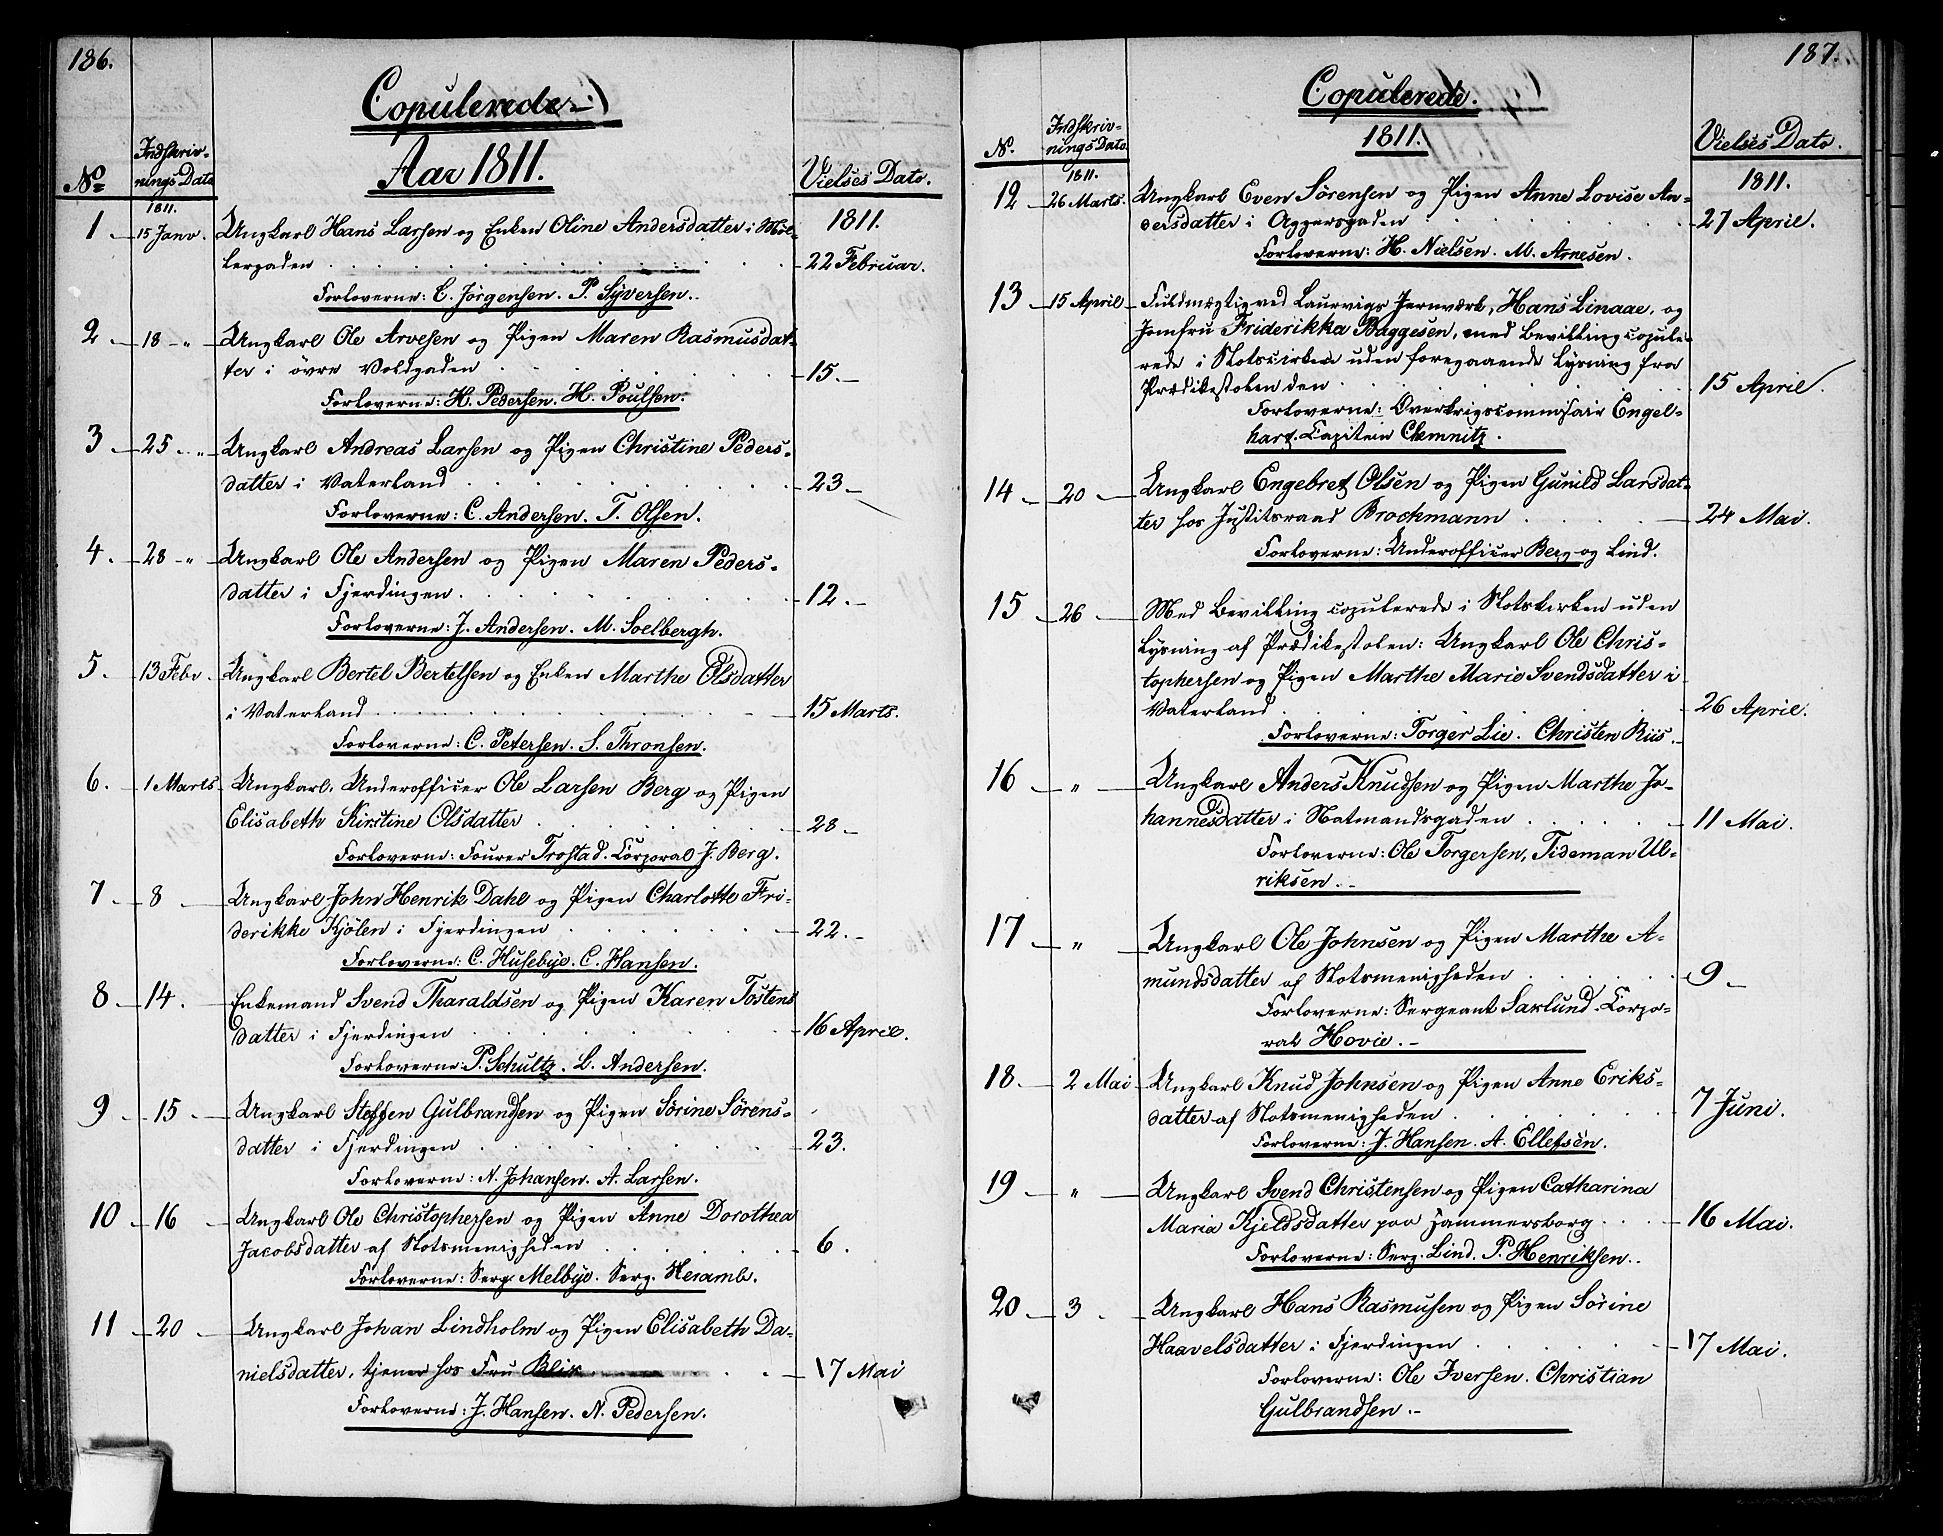 186.
Copulerede
Aar 1811.
No
Indskriv-
nings Dato
Vielses Dato.
1811.
1811.
1 15 Janv. Ungkarl Hans Larsen og Enken Oline Andersdatter i Møl-
lergaden 22 Februar.
Forloverne: C. Jörgensen. P. Syversen.
2 18 " Ungkarl Ole Arvesen og Pigen Maren Rasmusdat-
ter i övre Voldgaden 15.
Forloverne: H. Pedersen. H. Poulsen.
3 25 " Ungkarl Andreas Larsen og Pigen Christine Peders-
datter i Vaterland 23
Forloverne: C. Andersen. T. Olsen.
4. 28 " Ungkarl Ole Andersen og Pigen Maren Peders-
datter i Fjerdingen 12.
Forloverne: J. Andersen. M. Soelbergh.
5. 13 Febr. Ungkarl Bertel Bertelsen og Enken Marthe Olsdatter
i Vaterland 15 Marts.
Forloverne: C. Petersen. S. Thronsen.
6. 1 Marts Ungkarl, Underofficer Ole Larsen Berg og Pigen
Elisabeth Kirstine Olsdatter 28
Forloverne: Fourer Trostad. Corporal J. Berg.
7. 8 Ungkarl John Henrik Dahl og Pigen Charlotte Fri-
derikke Kjölen i Fjerdingen 22.
Forloverne: C. Husebye. C. Hansen.
8 14. Enkemand Svend Tharaldsen og Pigen Karen Tostens
datter i Fjerdingen 16 April.
Forloverne: P. Schultz. L. Andersen.
9 15 Ungkarl Steffen Gulbrandsen og Pigen Sörine Sörens-
datter i Fjerdingen 23.
Forloverne: N. Johansen. A. Larsen.
10 16 Ungkarl Ole Christophersen og Pigen Anne Dorothea
Jacobsdatter af Slotsmenigheden 6.
Forloverne: Serg. Melbye. Serg. Heramb.
11 20 Ungkarl Johan Lindholm og Pigen Elisabeth Da-
nielsdatter, tjener hos Fru Blix 17 Mai
Forloverne: J. Hansen. N. Pedersen.
187.
Copulerede.
1811.
N.
Indskriv-
nings Dato.
Vielses Dato.
1811.
1811.
12 26 Marts. Ungkarl Even Sörensen og Pigen Anne Lovise An-
dersdatter i Aggersgaden 27 April.
Forloverne: H. Nielsen. M. Arnesen.
13 15 April Fuldmægtig ved Laurvigs Jernværk, Hans Linaae, og
Jomfru Friderikka Baggesen, med Bevilling copule-
rede i Slotskirken uden foregaaende Lysning fra
Prædikestolen den 15 April.
Forloverne: Overkrigscommisair Engel-
hart. Capitein Chemnitz.
14 20 Ungkarl Engebret Olsen og Pigen Gunild Larsdat-
ter hos Justitsraad Brockmann 24 Mai.
Forloverne: Underofficer Berg og Lind.
15 26 Med Bevilling copulerede i Slotskirken uden
Lysning af Prædikestolen: Ungkarl Ole Chris-
tophersen og Pigen Marthe Marie Svendsdatter i
Vaterland 26 April.
Forloverne: Torger Lie. Christen Riis.
16 " Ungkarl Anders Knudsen og Pigen Marthe Jo-
hannesdatter i Natmandsgaden 11 Mai.
Forloverne: Ole Torgersen, Tideman Ul-
riksen.
17 " Ungkarl Ole Johnsen og Pigen Marthe A-
mundsdatter af Slotsmenigheden 9
Forloverne: Sergeant Saxlund. Corpo-
ral Hovie.
18. 2 Mai Ungkarl Knud Johnsen og Pigen Anne Eriks-
datter af Slotsmenigheden 7 Juni.
Forloverne: J. Hansen. A. Ellefsen.
19 " Ungkarl Svend Christensen og Pigen Catharina
Maria Kjeldsdatter paa Hammersborg 16 Mai.
Forloverne: Serg. Lind. P. Henriksen.
20 3 Ungkarl Hans Rasmusen og Pigen Sörine
Haavelsdatter i Fjerdingen 17 Mai.
Forloverne: Ole Iversen. Christian
Gulbrandsen.